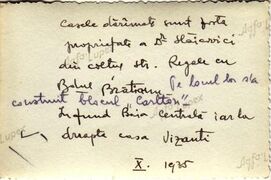 Casele dărîmate sunt fosta
proprietate a Dr Stăicovici
din colțul str. Regale cu
Bdul Brătianu. Pe locul lor s'a
construit blocul „Carlton".
În fund Baia Centrală iar la
dreapta casa Vizanti
X. 1935